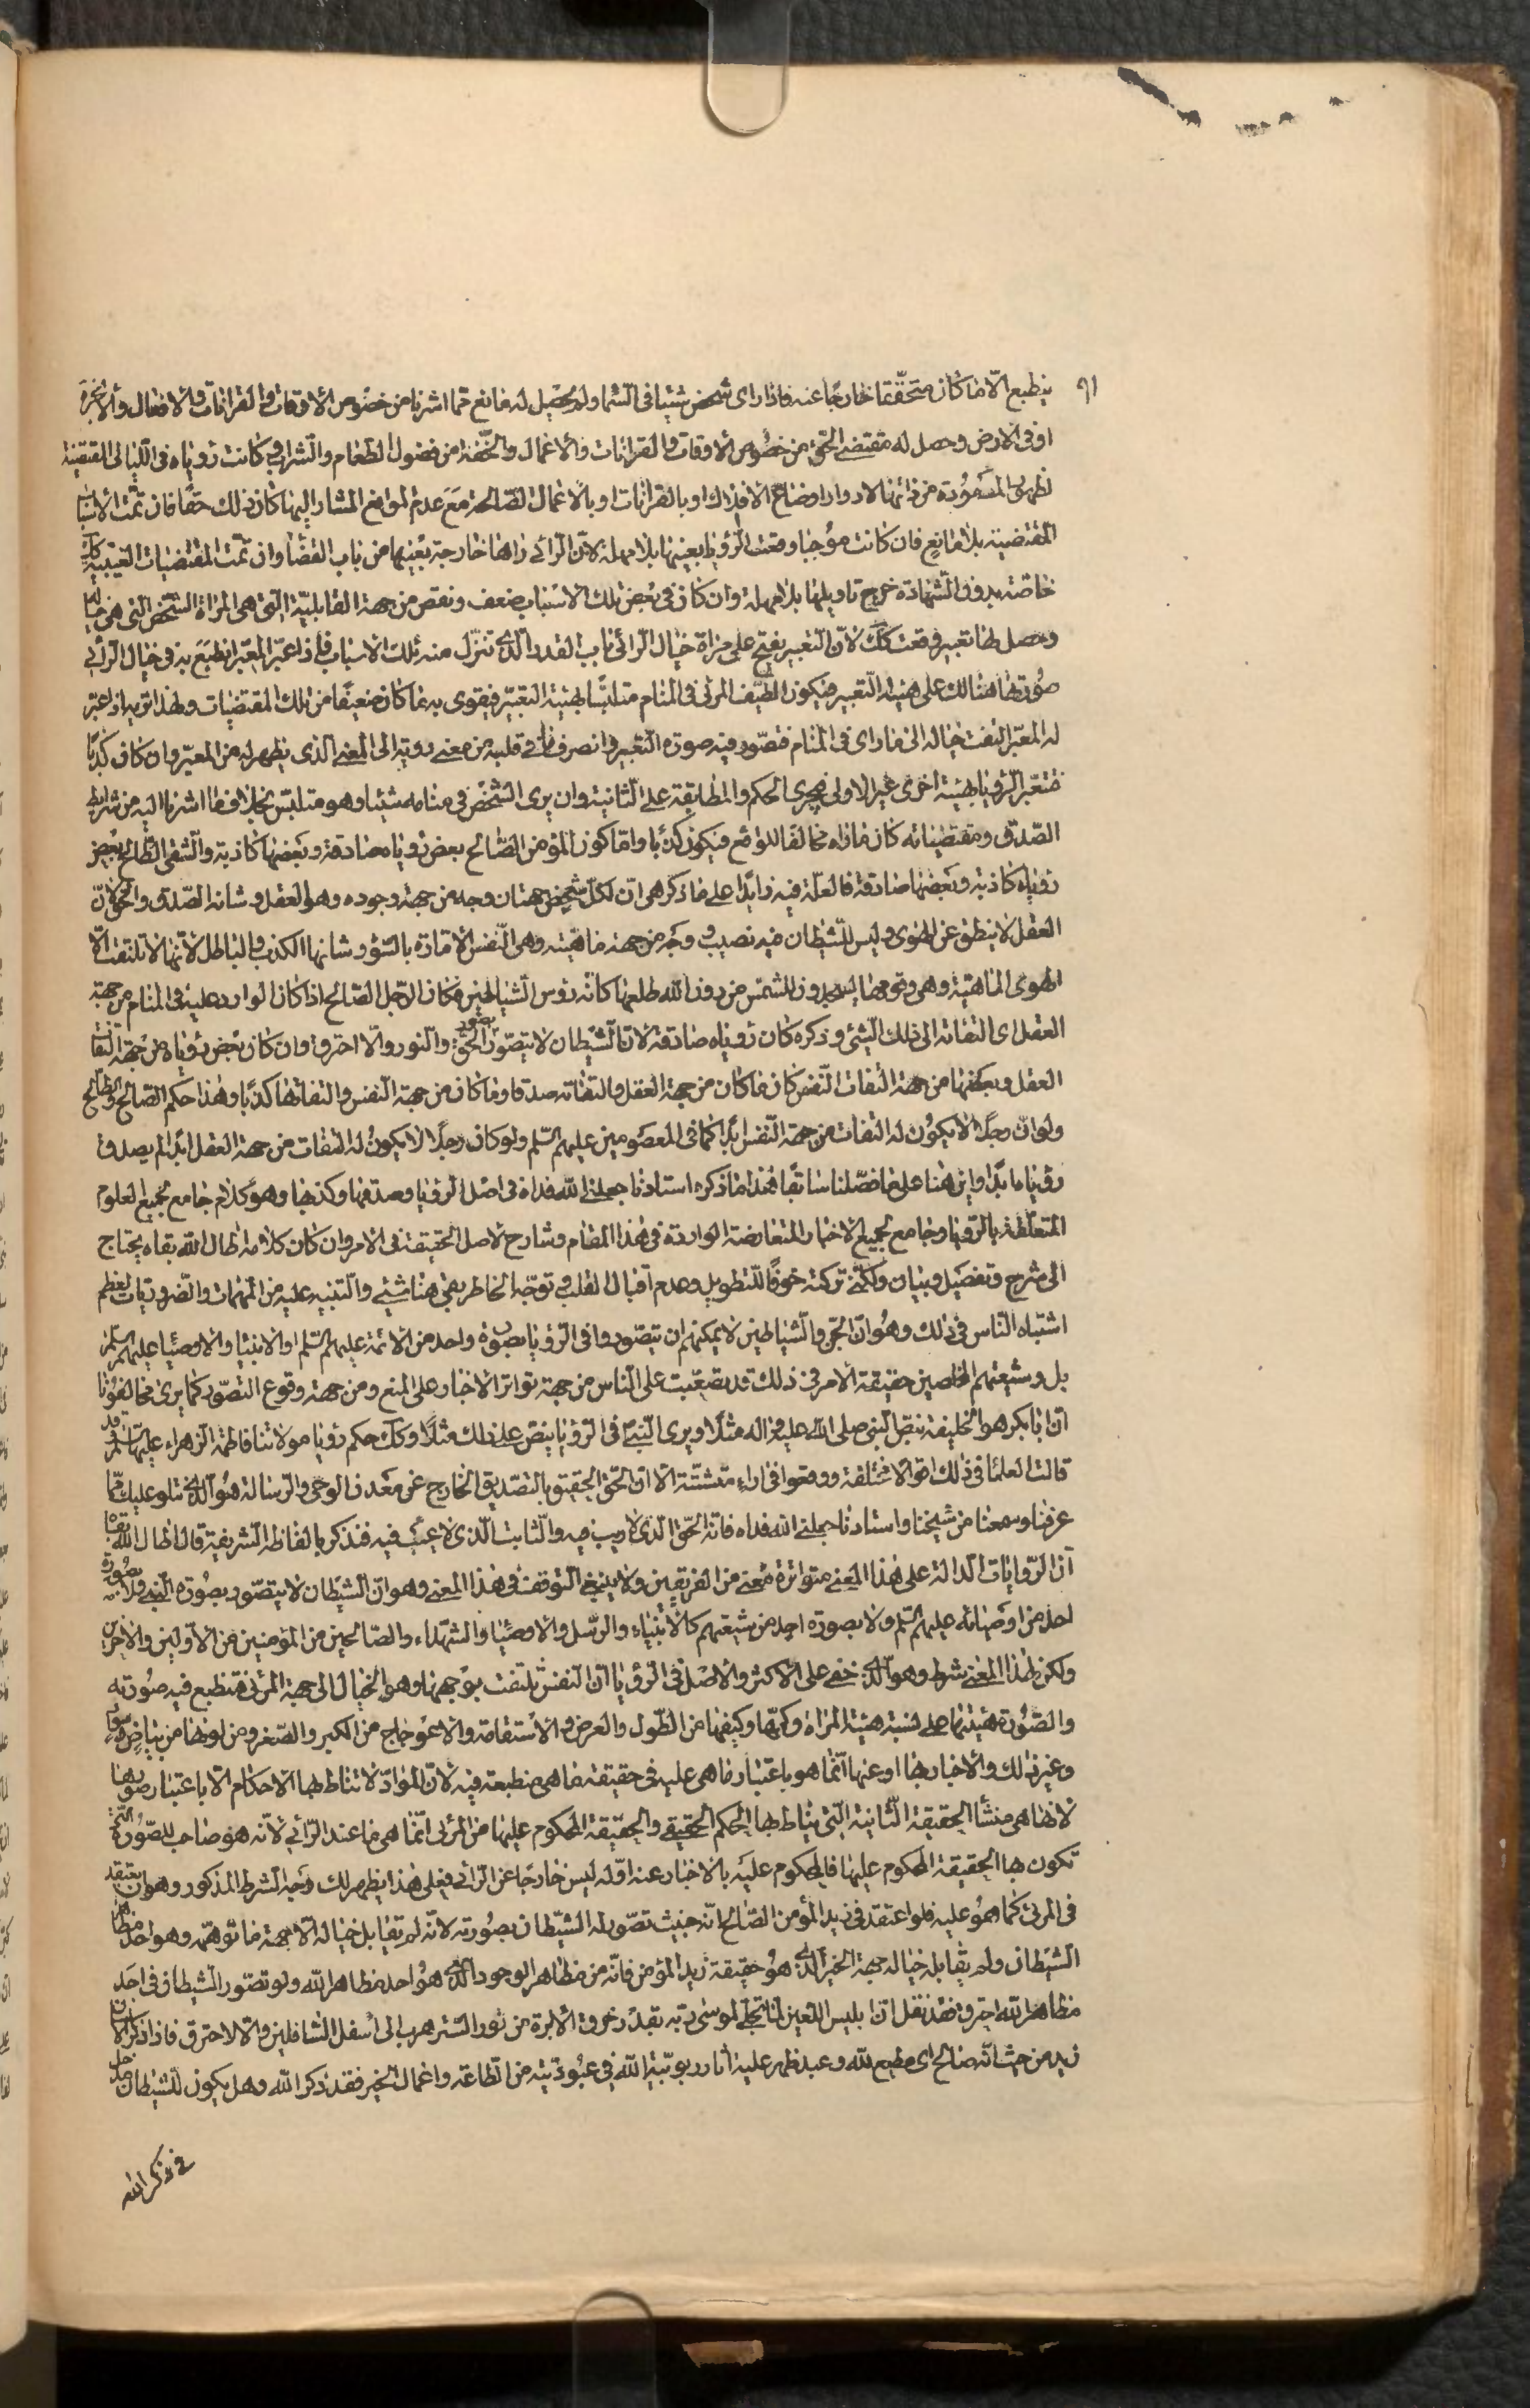 ٩١
ينطبع الّا ما كان متحقّقا خارجًا عنه فاذا رای شخص شيئا فی السّماء ولم يحصل له مانع ممّا اشرنا من خصوص الاوقات والقرانات والافعال والابخرة
او فی الارض وحصل له مقتضی الحقّ من خصوص الاوقات والقرانات والاعمال والخفّة من فضول الطعام والشراب وكانت رؤياه فی الليالی المقتضية
لظهور المسعودة من ذاتها لادوار اوضاع الافلاك او بالقرانات او بالاعمال الصّالحة مع عدم الموانع المشار اليها كان ذلك حقّا فان تمّت الاسباب
المقتضية بلا مانع فان كانت موجبا وقعت الرّؤيا بعينها بلا مهلة لانّ الرائی راها خارجة بعينها من باب القضا وان تمّت المقتضيات الغيبيّة
خاصّة بدون الشّهادة خرج تاويلها بلا مهلة وان كان فی بعض تلك الاسباب ضعف ونقص من جهة القابليّة التی هی المراة الشخص التی هی خياله
وحصل لها تعبير وقعت كك لانّ التعبير يفتح علی مراة خيال الرائی باب القدر الّذی تنزّل منه تلك الاسباب فاذا عبّر المعبّر انطبع به فی خيال الرائی
صورتها هنالك علی هيئة التعبير فيكون الطيف المرئی فی المنام متلبّسا بهيئة التعبير فيقوی به ما كان ضعيفًا من تلك المقتضيات ولهذا تریه اذا عبّر
له المعبّر التفت خياله الی ما رای فی المنام فتصوّر فيه صورة التعبير وانصرف ما فی قلبه من معنی رؤيته الی المعنی الذی يظهر له من المعبّر وان كان كذبًا
فتعبّر الرّؤيا بهيئة اخری غير الاولی فيجری الحكم والمطابقة علی الثانية وان يری الشّخص فی منامه شيئا وهو متلبّس بخلاف ما اشرنا اليه من شرايط
الصّدق ومقتضياته كان ما راه مخالفا للواقع فيكون كذبا وامّا كون المؤمن الصّالح بعض رؤياه صادقة وبعضها كاذبة والشقی الطّالح بعض
رؤياه كاذبة وبعضها صادقة فالعلّة فيه زايدًا علی ما ذكر هی انّ لكلّ شخص جهتان وجه من جهة وجوده وهو العقل وشانه الصّدق والحقّ لانّ
العقل لا ينطق عن الهوی وليس للشيطان فيه نصيب ووجه من جهة ماهيّته وهی النّفس الامّارة بالسّوء وشانها الكذب والباطل لانّها لا تلتفت الّا
الهوی الماهيّة وهی وقومها يسجدون للشمس من دون الله طلعها كانّه رؤس الشّياطين فكان الرّجل الصّالح اذا كان الوارد عليه فی المنام من جهة
العقل ای التفاته الی ذلك الشیء وذكره كان رؤياه صادقة لانّ الشّيطان لا يتصوّر بصور الحقّ والنور والّا احترق وان كان بعض رؤياه من جهة التفات
العقل وبعضها من جهة التفات النّفس كان ما كان من جهة العقل والتفاته صدقا وما كان من جهة النفس والتفاتها كذبًا وهذا حكم الصّالح والطّالح
ولو انّ رجلًا لا يكون له التفات من جهة النّفس ابدًا كما فی المعصومين عليهم السّلم ولو كان رجلًا لا يكون له التفات من جهة العقل ابدًا لم يصدق
رؤياه ابدًا وابن هنا علی ما فصّلنا سابقًا فهذا ما ذكره استادنا جعلنی الله فداه فی اصل الرؤيا وصدقها وكذبها وهو كلام جامع لجميع العلوم
المتعلّقة بالرّؤيا وجامع لجميع الاخبار المتعارضة الواردة فی هذا المقام وشارح لاصل الحقيقة فی الامر وان كان كلامه اطال الله بقاه يحتاج
الی شرح وتفصيل وبيان ولكنّی تركته خوفًا للتطويل وعدم اقبال القلب وتوجّه الخاطر بقی هنا شیء والتنبيه عليه من المهمّات والضّروريات لعظم
اشتباه الناس فی ذلك وهو انّ الجنّ والشّياطين لا يمكنهم ان يتصوّروا فی الرّؤيا بصورة واحد من الائمّة عليهم السّلم او الانبيا والاوصيا عليهم السّلم
بل وشيعتهم المخلصين حقيقة الامر فی ذلك قد تصعّبت علی الناس من جهة تواتر الاخبار علی المنع ومن جهة وقوع التصوّر كما يری مخالفونا
انّ ابا بكر هو الخليفة بنصّ النّبی صلی الله عليه واله مثلًا ويری النّبی فی الرّؤيا ينصّ علی ذلك مثلًا وكك حكم رؤيا مولاتنا فاطمة الزهراء عليها السّلم قد
قالت العلما فی ذلك اقوالا مختلفة ووقعوا فی اراء متشتّتة الّا انّ الحقّ الحقيق بالتّصديق الخارج عن معدن الوحی والرّسالة هو الّذی نتلو عليك ممّا
عرفنا وسمعنا من شيخنا واستادنا جعلنی الله فداه فانّه الحقّ الّذی لا ريب فيه والثّابت الّذی لا عيب فيه فنذكر بالفاظه الشّريفة قال اطال الله بقاه
انّ الرّوايات الدالّة علی هذا المعنی متواترة معنی من الفريقين ولا ينبغی التوقّف فی هذا المعنی وهو انّ الشّيطان لا يتصوّر بصورة النّبی ولا بصورة
احد من اوصيائه عليهم السّلم ولا بصورة احد من شيعتهم كالانبياء والرّسل والاوصيا والشّهداء والصّالحين من المؤمنين من الاوّلين والاخرين
ولكن لهذا المعنی شرط وهو الّذی خفی علی الاكثر والاصل فی الرّؤيا انّ النفس تلتفت بوجهها وهو الخيال الی جهة المرئی فتنطبع فيه صورته
والصّورة هيئتها علی نسبة هيئة المراة وكمّها وكيفها من الطّول والعرض والاستقامة والاعوجاج من الكبر والصّغر ومن لونها من بياض وسواد
وغير ذلك والاخبار بها او عنها انّما هو باعتبار ما هی عليه فی حقيقة ما هی منطبعة فيه لانّ الموادّ لا تناط بها الاحكام الّا باعتبار صورها
لانها هی منشأ الحقيقة الثّانية الّتی يناط بها الحكم الحقيقی والحقيقة المحكوم عليها من المرئی انّما هی ما عند الرّائی لانّه هو صاحب الصّورة الّتی
تكون بها الحقيقة المحكوم عليها فالمحكوم عليه بالاخبار عنه اوّله ليس خارجًا عن الرّائی فعلی هذا يظهر لك وجه الشرط المذكور وهو ان يعتقد
فی المرئی كما هو عليه فلو اعتقد فی زيد المؤمن الصّالح انّه خبيث تصوّر له الشّيطان بصورته لانّه لم تقابل خياله الّا جهة ما توهّمه وهو احد مظاهر
الشّيطان ولم يقابله خياله جهة الخير الّذی هو حقيقة زيد المؤمن فانّه من مظاهر الوجود الّذی هو احد مظاهر الله ولو تصوّر الشّيطان فی احد
مظاهر الله احترق فقد نقل انّ ابليس اللعين لمّا تجلّی لموسی ربّه بقدر خرق الابرة من نور الستر هرب الی اسفل السّافلين والّا لاحترق فاذا ذكر الانسان
زيد من حيث انّه صالح ای مطيع لله وعبد ظهر عليه اثار ربوبيّة الله فی عبوديّته من الطّاعة واعمال الخير فقد ذكر الله وهل يكون للشّيطان مدخل
فی ذكر الله